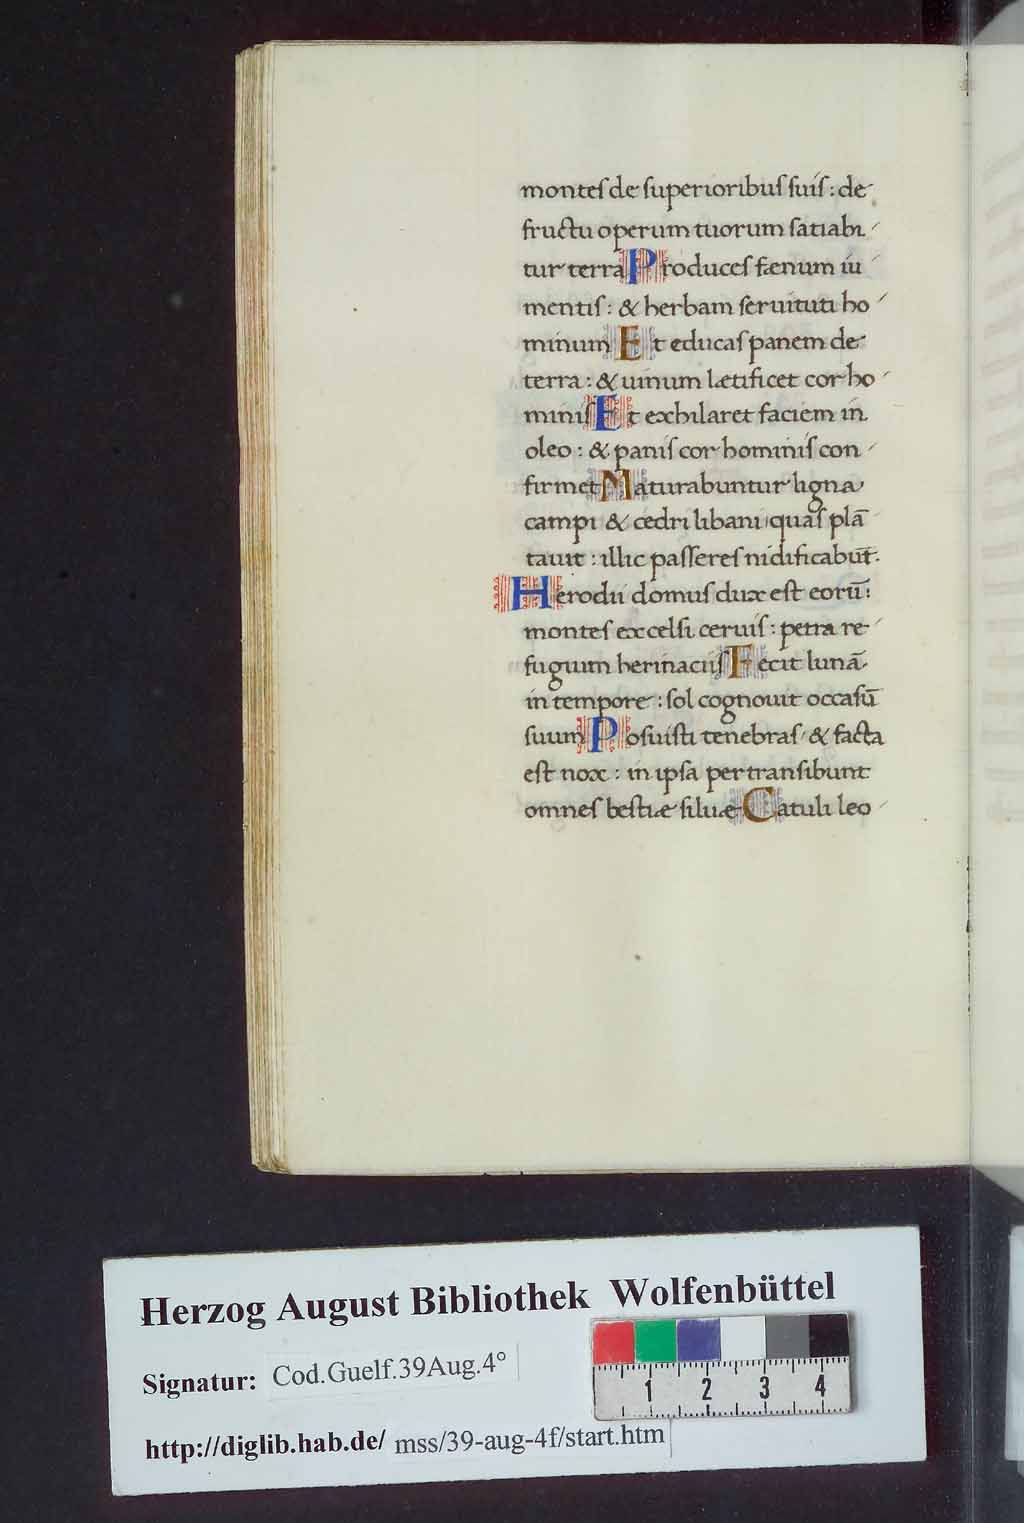 montes de superioribus suis: de
fructu operum tuorum satiabi
tur terra Produces fænum iu
mentis: & herbam seruituti ho
minum Et educas panem de
terra: & uinum lætificet cor ho
minis Et exhilaret faciem in
oleo: & panis cor hominis con
firmet Maturabuntur ligna
campi & cedri libani quas plā
tauit: illic passeres nidificabūt.
Herodii domus dux est eorū:
montes excelsi ceruis: petra re
fugium herinaciis Fecit lunā
in tempore: sol cognouit occasū
suum Posuisti tenebras & facta
est nox: in ipsa pertransibunt
omnes bestiæ siluæ Catuli leo
Herzog August Bibliothek Wolfenbüttel
Signatur: Cod.Guelf.39Aug.4°
http://diglib.hab.de/ mss/39-aug-4f/start.htm
1 2 3 4